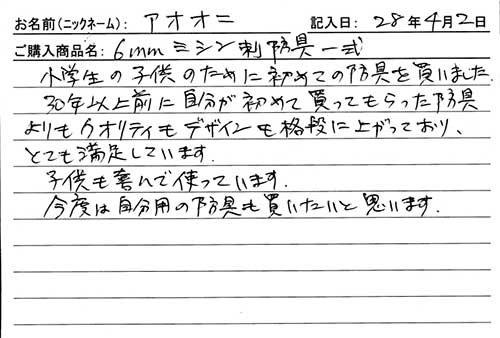 お名前(ニックネーム): アオオニ 記入日: 28年4月2日
ご購入商品名: 6mmミシン刺防具一式
小学生の子供のために初めての防具を買いました.
30年以上前に自分が初めて買ってもらった防具
よりもクオリティもデザインも格段に上がっており、
とても満足しています.
子供も喜んで使っています.
今度は自分用の防具も買いたいと思います.